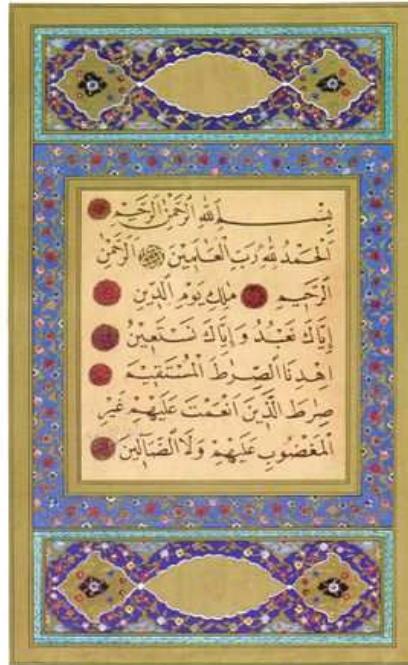 بِسْمِ اللهِ الرَّحْمٰنِ الرَّحِيمِ
اَلْحَمْدُ لِلهِ رَبِّ الْعَالَمِينَ اَلرَّحْمٰنِ
الرَّحِيمِ مَلِكِ يَوْمِ الدِّينِ
اِيَّاكَ نَعْبُدُ وَاِيَّاكَ نَسْتَعِينُ
اِهْدِنَا الصِّرَاطَ الْمُسْتَقِيمَ
صِرَاطَ الَّذِينَ اَنْعَمْتَ عَلَيْهِمْ غَيْرِ
الْمَغْضُوبِ عَلَيْهِمْ وَلَا الضَّالِّينَ